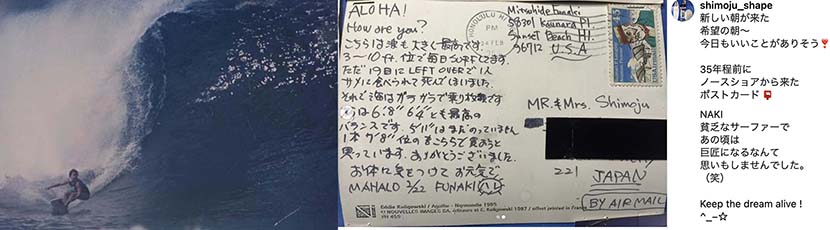 ALOHA!
How are you?
こちらは波も大きく最高です。
3〜10ft.位で毎日SURFしてます。
ただ19日にLEFT OVERで1人
サメに食べられて死んでしまいました。
それで海はガラガラで乗り放題です
6'8" 6'4"とも最高の
バランスです。5'11"はまだのっていません
1本7'8"位のをこちらで買おうと
思っています。ありがとうございました。
お体に気をつけてお元気で
MAHALO 2/22 FUNAKI
HONOLULU HI
PM
Mitsuhide Funaki
Sunset Beach HI.
96712 U.S.A
MR. & Mrs. Shimoju
221
JAPAN
BY AIR MAIL
Eddie Kuligowski / Aguila - Normandie 1985
© NOUVELLES IMAGES SA, éditeurs et E. Kuligowski 1987 / offset printed in France
PH 459
shimoju_shape
新しい朝が来た
希望の朝〜
今日もいいことがありそう❣️
35年程前に
ノースショアから来た
ポストカード📮
NAKI
貧乏なサーファーで
あの頃は
巨匠になるなんて
思いもしませんでした。
（笑）
Keep the dream alive !
^_−☆